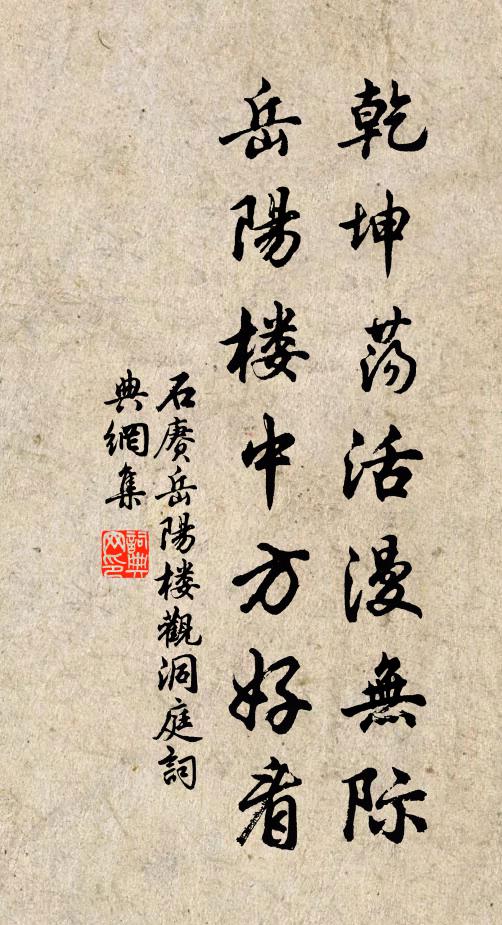 乾坤荡活漫無际
岳陽楼中方好看
石赓岳陽楼觀洞庭詞
典網集
詞典
网印